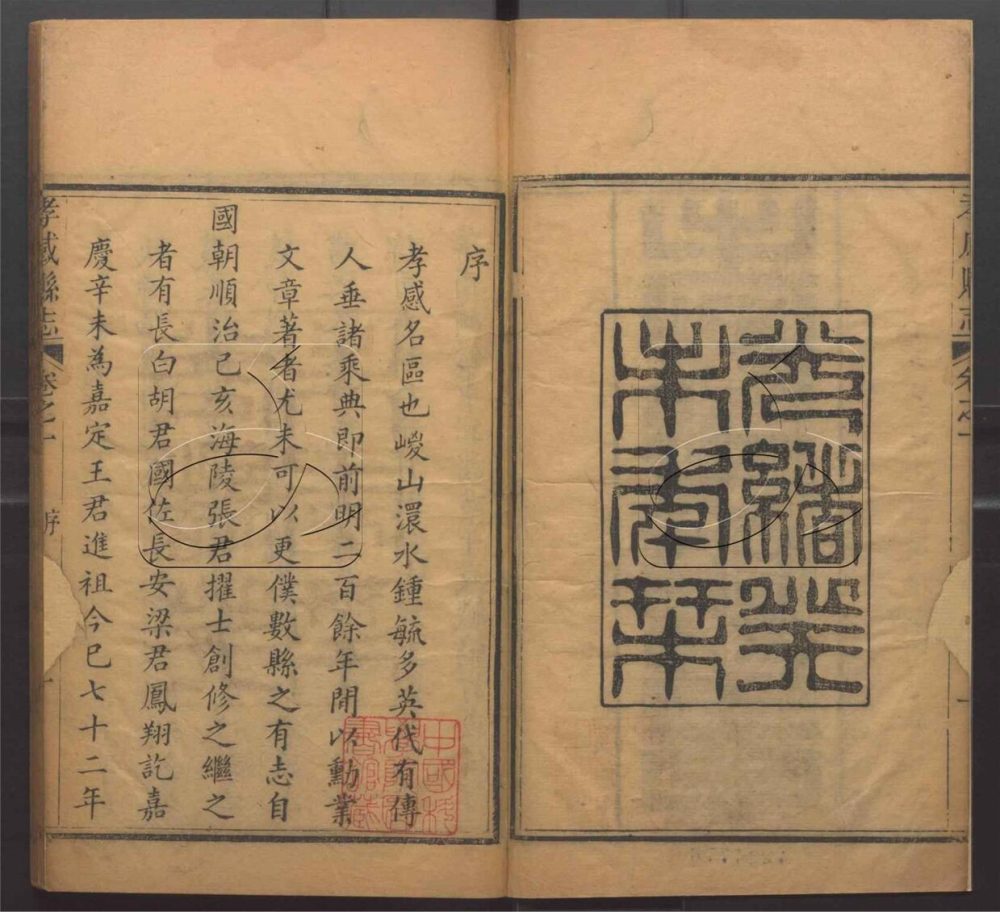 光緒癸
未年栞
序
孝感名區也嵕山澴水鍾毓多英代有傳
人垂諸乘典即前明二百餘年閒以勳業
文章著者尤未可以更僕數縣之有志自
國朝順治己亥海陵張君擢士創修之繼之
者有長白胡君國佐長安梁君鳳翔訖嘉
慶辛未為嘉定王君進祖今已七十二年
孝感縣志 卷之一 序 一
中國科
學院圖
書館藏